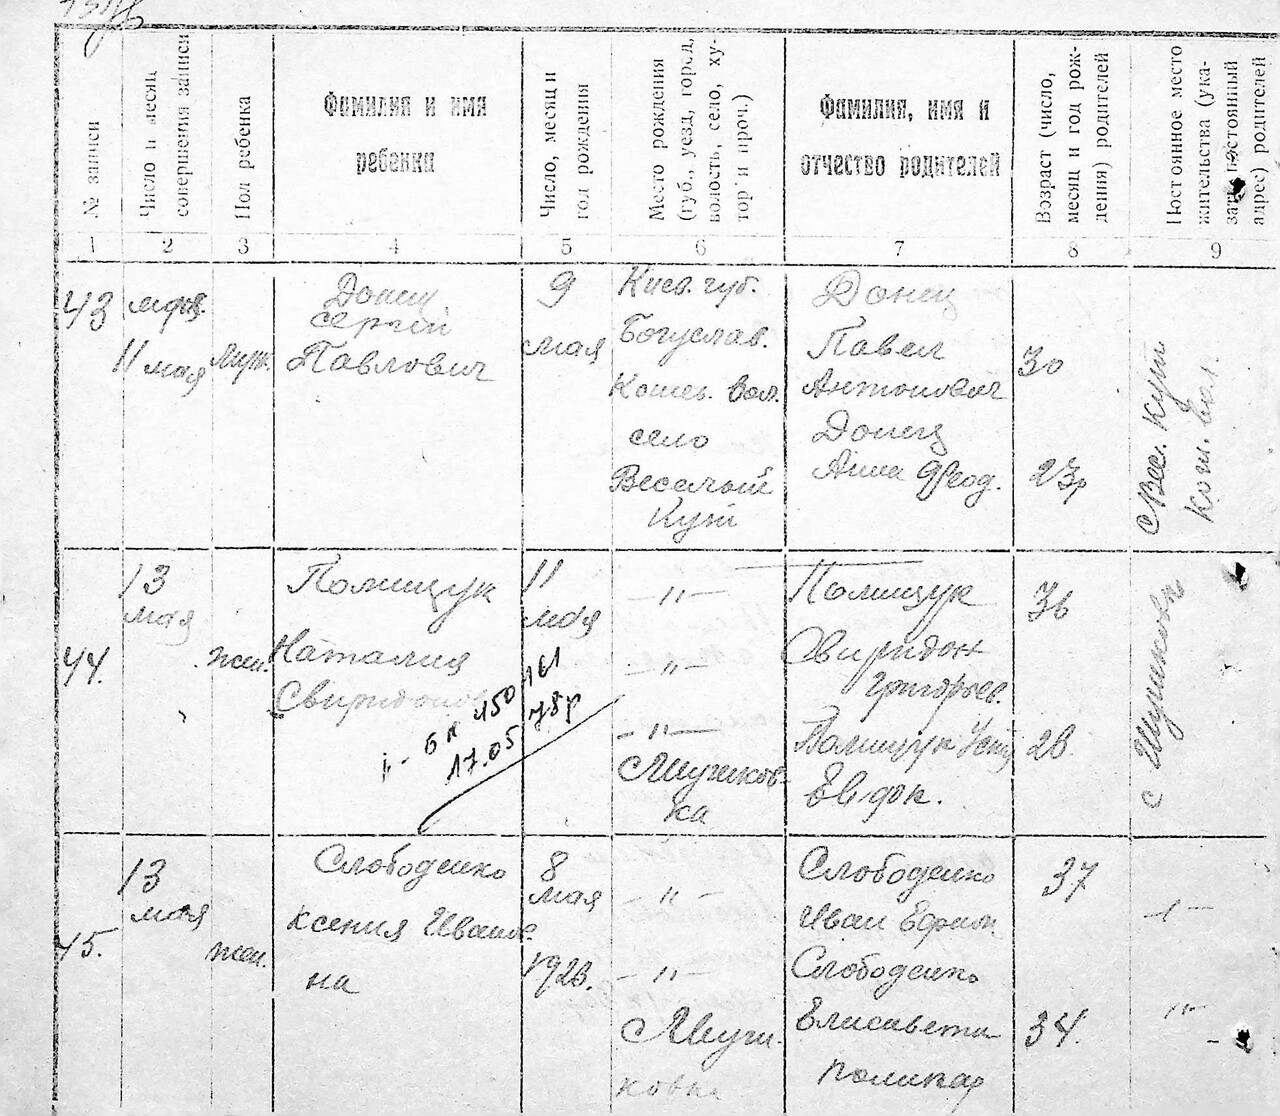 № записи
Число и месяц
совершения записи
Пол ребенка
Фамилия и имя
ребенка
Число, месяц и
год рождения
Место рождения
(губ., уезд, город,
волость, село, ху-
тор и проч.)
Фамилия, имя и
отчество родителей
Возраст (число,
месяц и год рож-
дения) родителей
Постоянное место
жительства (ука-
зать постоянный
адрес) родителей
1 2 3 4 5 6 7 8 9
43
11 мая
Муж.
Донец
Сергей
Павлович
9
мая
Киев. губ.
Богуслав.
Кошев. вол.
село
Веселый
Кут
Донец
Павел
Антонович
Донец
Анна Феод.
30
23
с Вес. Кут
Кош. вол.
44.
13
мая
жен.
Полищук
Наталия
Свиридонов
11
мая
450
17.05
78р
— " —
— " —
— " —
Полищук
Свиридон
Григорьев.
Полищук
Евдок.
36
45.
13
мая
жен.
Слободенко
Ксения Иванов
на
8
мая
1923.
" —
— " —
Слободенко
Иван Ефрем.
Слободенко
Елисавета
Поликар
37
34.